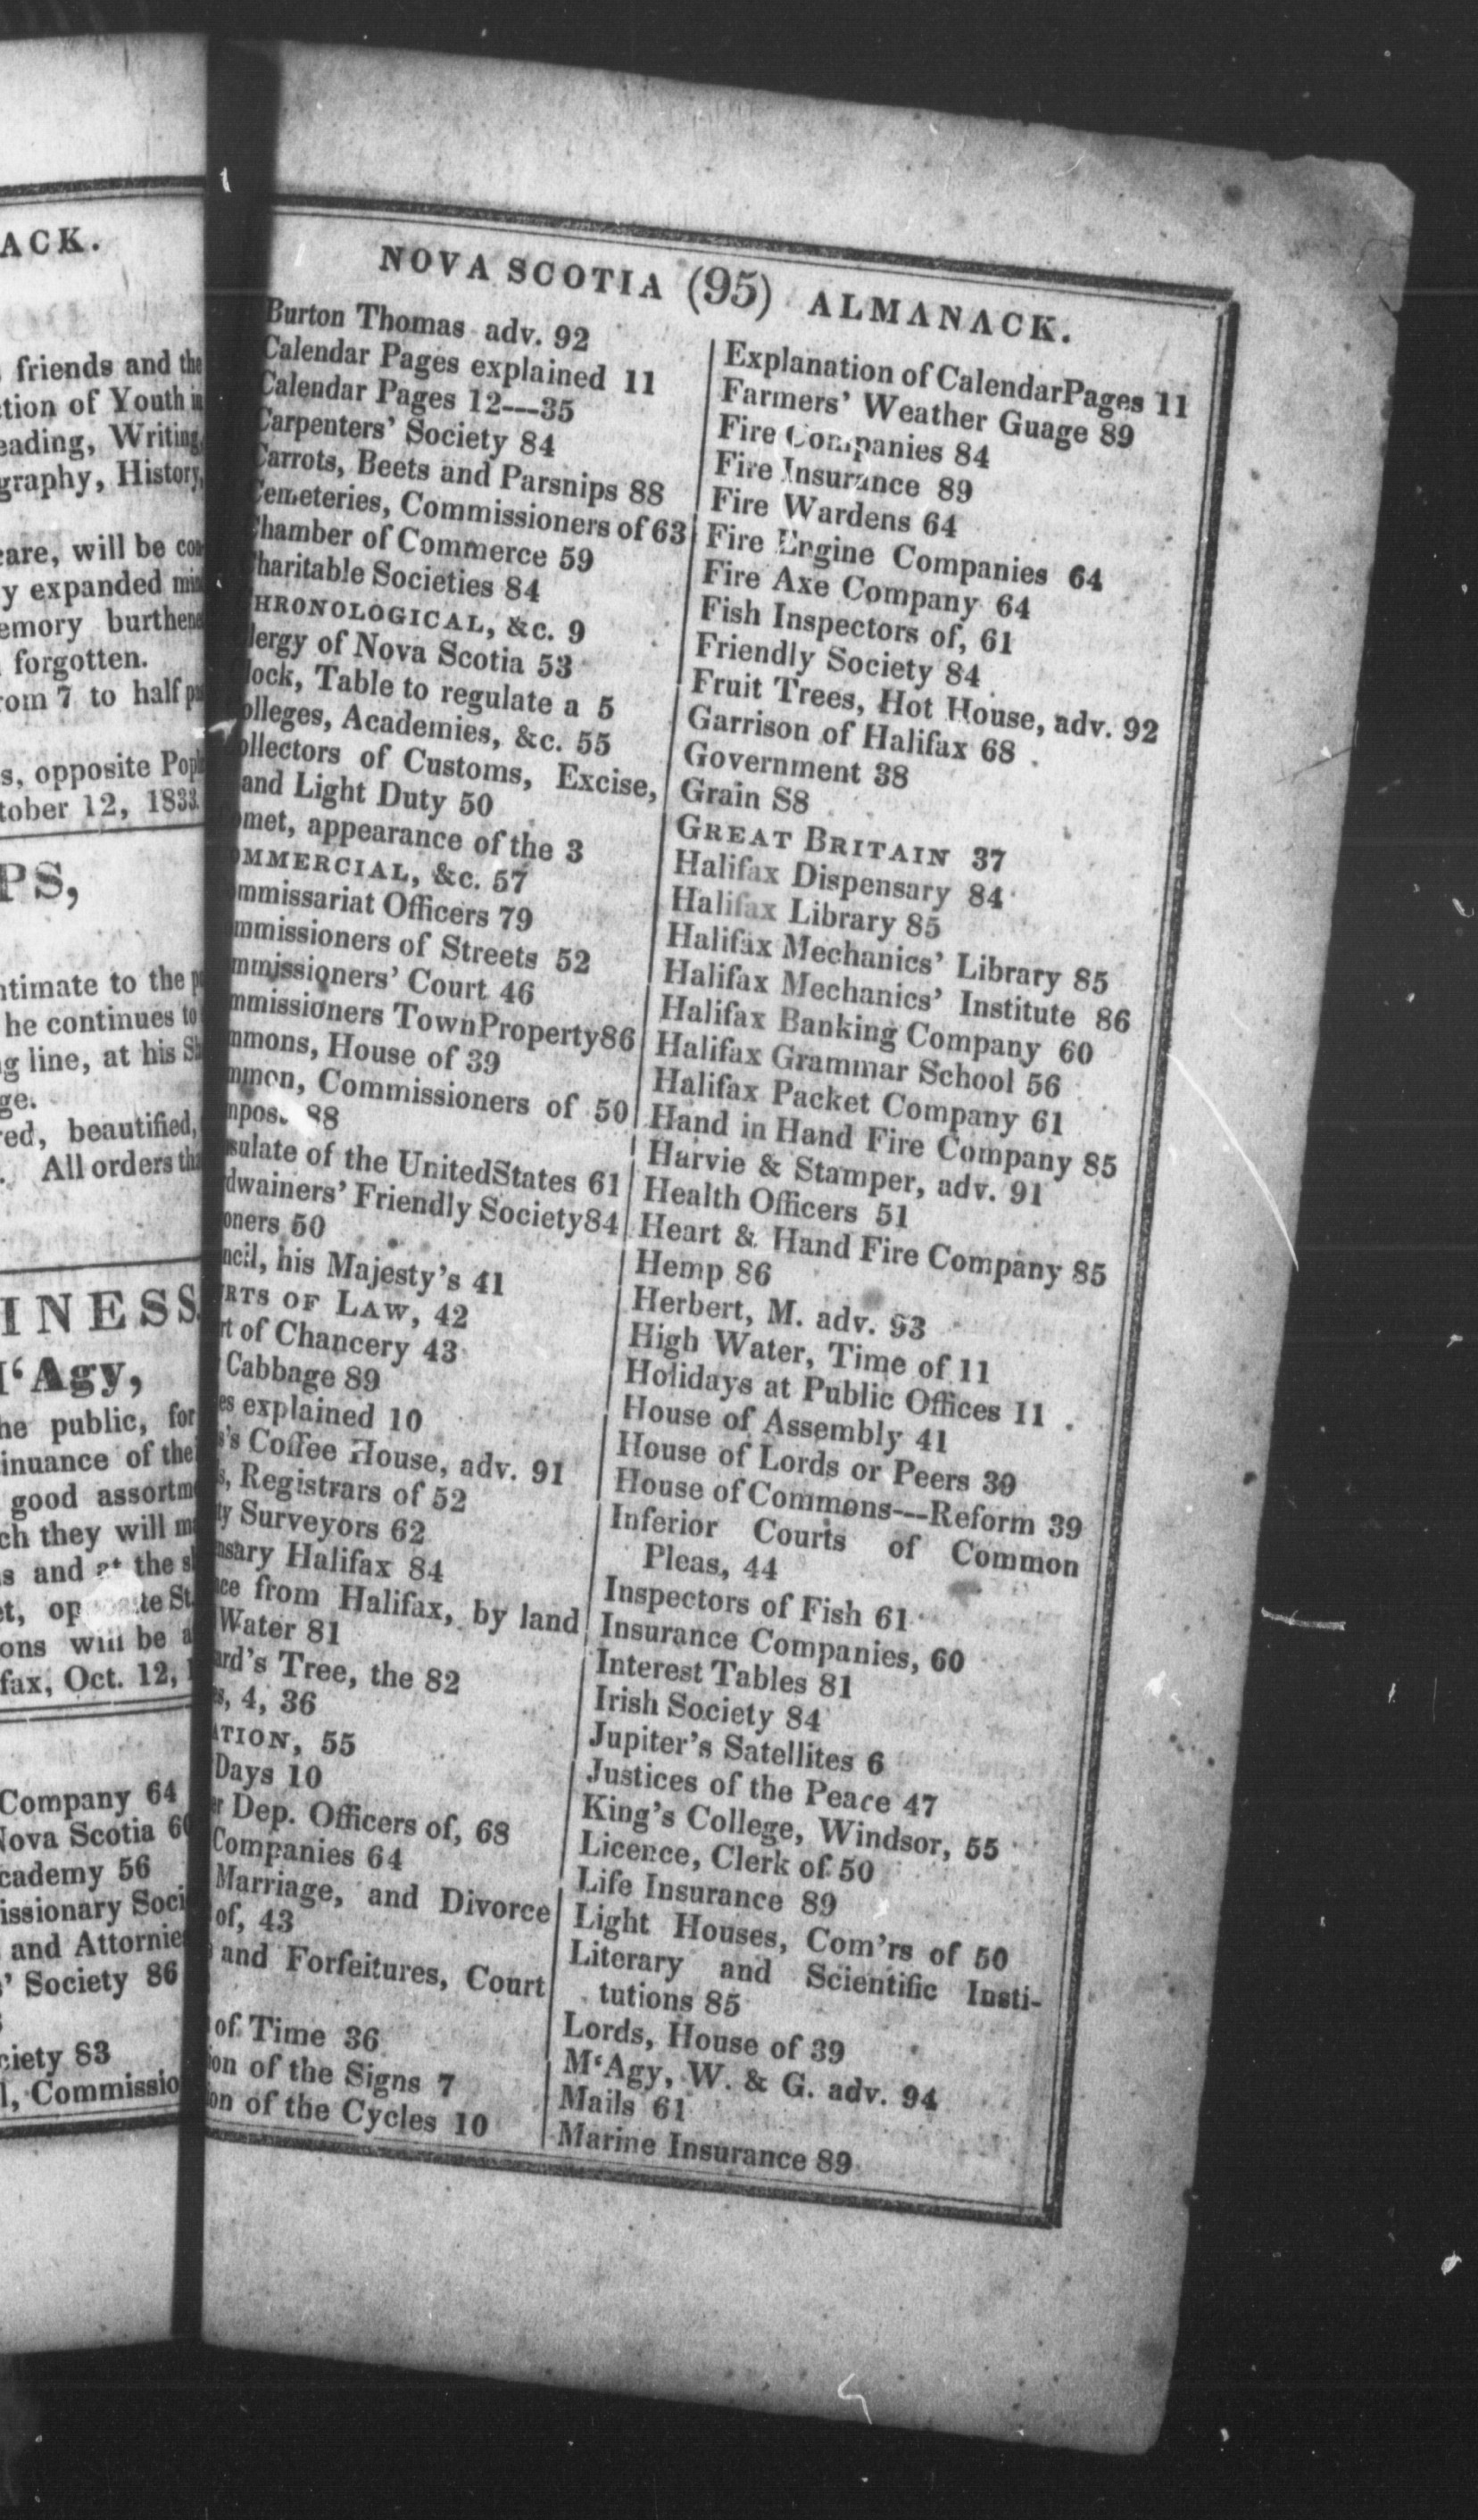 ACK.
friends and the
tion of Youth
eading, Writing,
graphy, History,
care, will be
y expanded
emory
forgotten.
rom 7 to half
s, opposite
tober 12, 1833.
PS,
ntimate to the
he continues to
g line, at his
ge.
red, beautified,
All orders
INESS
M‘Agy,
he public, for
inuance of the
good
ch they will
s and at the
et,
ons will be
fax, Oct. 12,
Company 64
Nova Scotia
cademy 56
issionary
and
' Society 86
ciety 83
l,
NOVA SCOTIA (95) ALMANACK.
Burton Thomas adv. 92
Calendar Pages explained 11
Calendar Pages 12---35
Carpenters' Society 84
Carrots, Beets and Parsnips 88
Cemeteries, Commissioners of 63
Chamber of Commerce 59
Charitable Societies 84
CHRONOLOGICAL, &c. 9
Clergy of Nova Scotia 53
lock, Table to regulate a 5
olleges, Academies, &c. 55
ollectors of Customs, Excise,
and Light Duty 50
omet, appearance of the 3
OMMERCIAL, &c. 57
ommissariat Officers 79
mmissioners of Streets 52
mmissioners' Court 46
mmissioners TownProperty86
mmons, House of 39
mmon, Commissioners of 50
mpost 88
nsulate of the UnitedStates 61
dwainers' Friendly Society84
oners 50
ncil, his Majesty's 41
RTS OF LAW, 42
rt of Chancery 43
Cabbage 89
es explained 10
s's Coffee House, adv. 91
s, Registrars of 52
ty Surveyors 62
nsary Halifax 84
nce from Halifax, by land
Water 81
ard's Tree, the 82
s, 4, 36
ATION, 55
Days 10
r Dep. Officers of, 68
Companies 64
Marriage, and Divorce
of, 43
and Forfeitures, Court
of Time 36
ion of the Signs 7
on of the Cycles 10
Explanation of CalendarPages 11
Farmers' Weather Guage 89
Fire Companies 84
Fire Insurance 89
Fire Wardens 64
Fire Engine Companies 64
Fire Axe Company 64
Fish Inspectors of, 61
Friendly Society 84
Fruit Trees, Hot House, adv. 92
Garrison of Halifax 68
Government 38
Grain S8
GREAT BRITAIN 37
Halifax Dispensary 84
Halifax Library 85
Halifax Mechanics' Library 85
Halifax Mechanics' Institute 86
Halifax Banking Company 60
Halifax Grammar School 56
Halifax Packet Company 61
Hand in Hand Fire Company 85
Harvie & Stamper, adv. 91
Health Officers 51
Heart & Hand Fire Company 85
Hemp 86
Herbert, M. adv. 93
High Water, Time of 11
Holidays at Public Offices 11
House of Assembly 41
House of Lords or Peers 39
House of Commons---Reform 39
Inferior Courts of Common
Pleas, 44
Inspectors of Fish 61
Insurance Companies, 60
Interest Tables 81
Irish Society 84
Jupiter's Satellites 6
Justices of the Peace 47
King's College, Windsor, 55
Licence, Clerk of 50
Life Insurance 89
Light Houses, Com'rs of 50
Literary and Scientific Insti-
tutions 85
Lords, House of 39
M‘Agy, W. & G. adv. 94
Mails 61
Marine Insurance 89